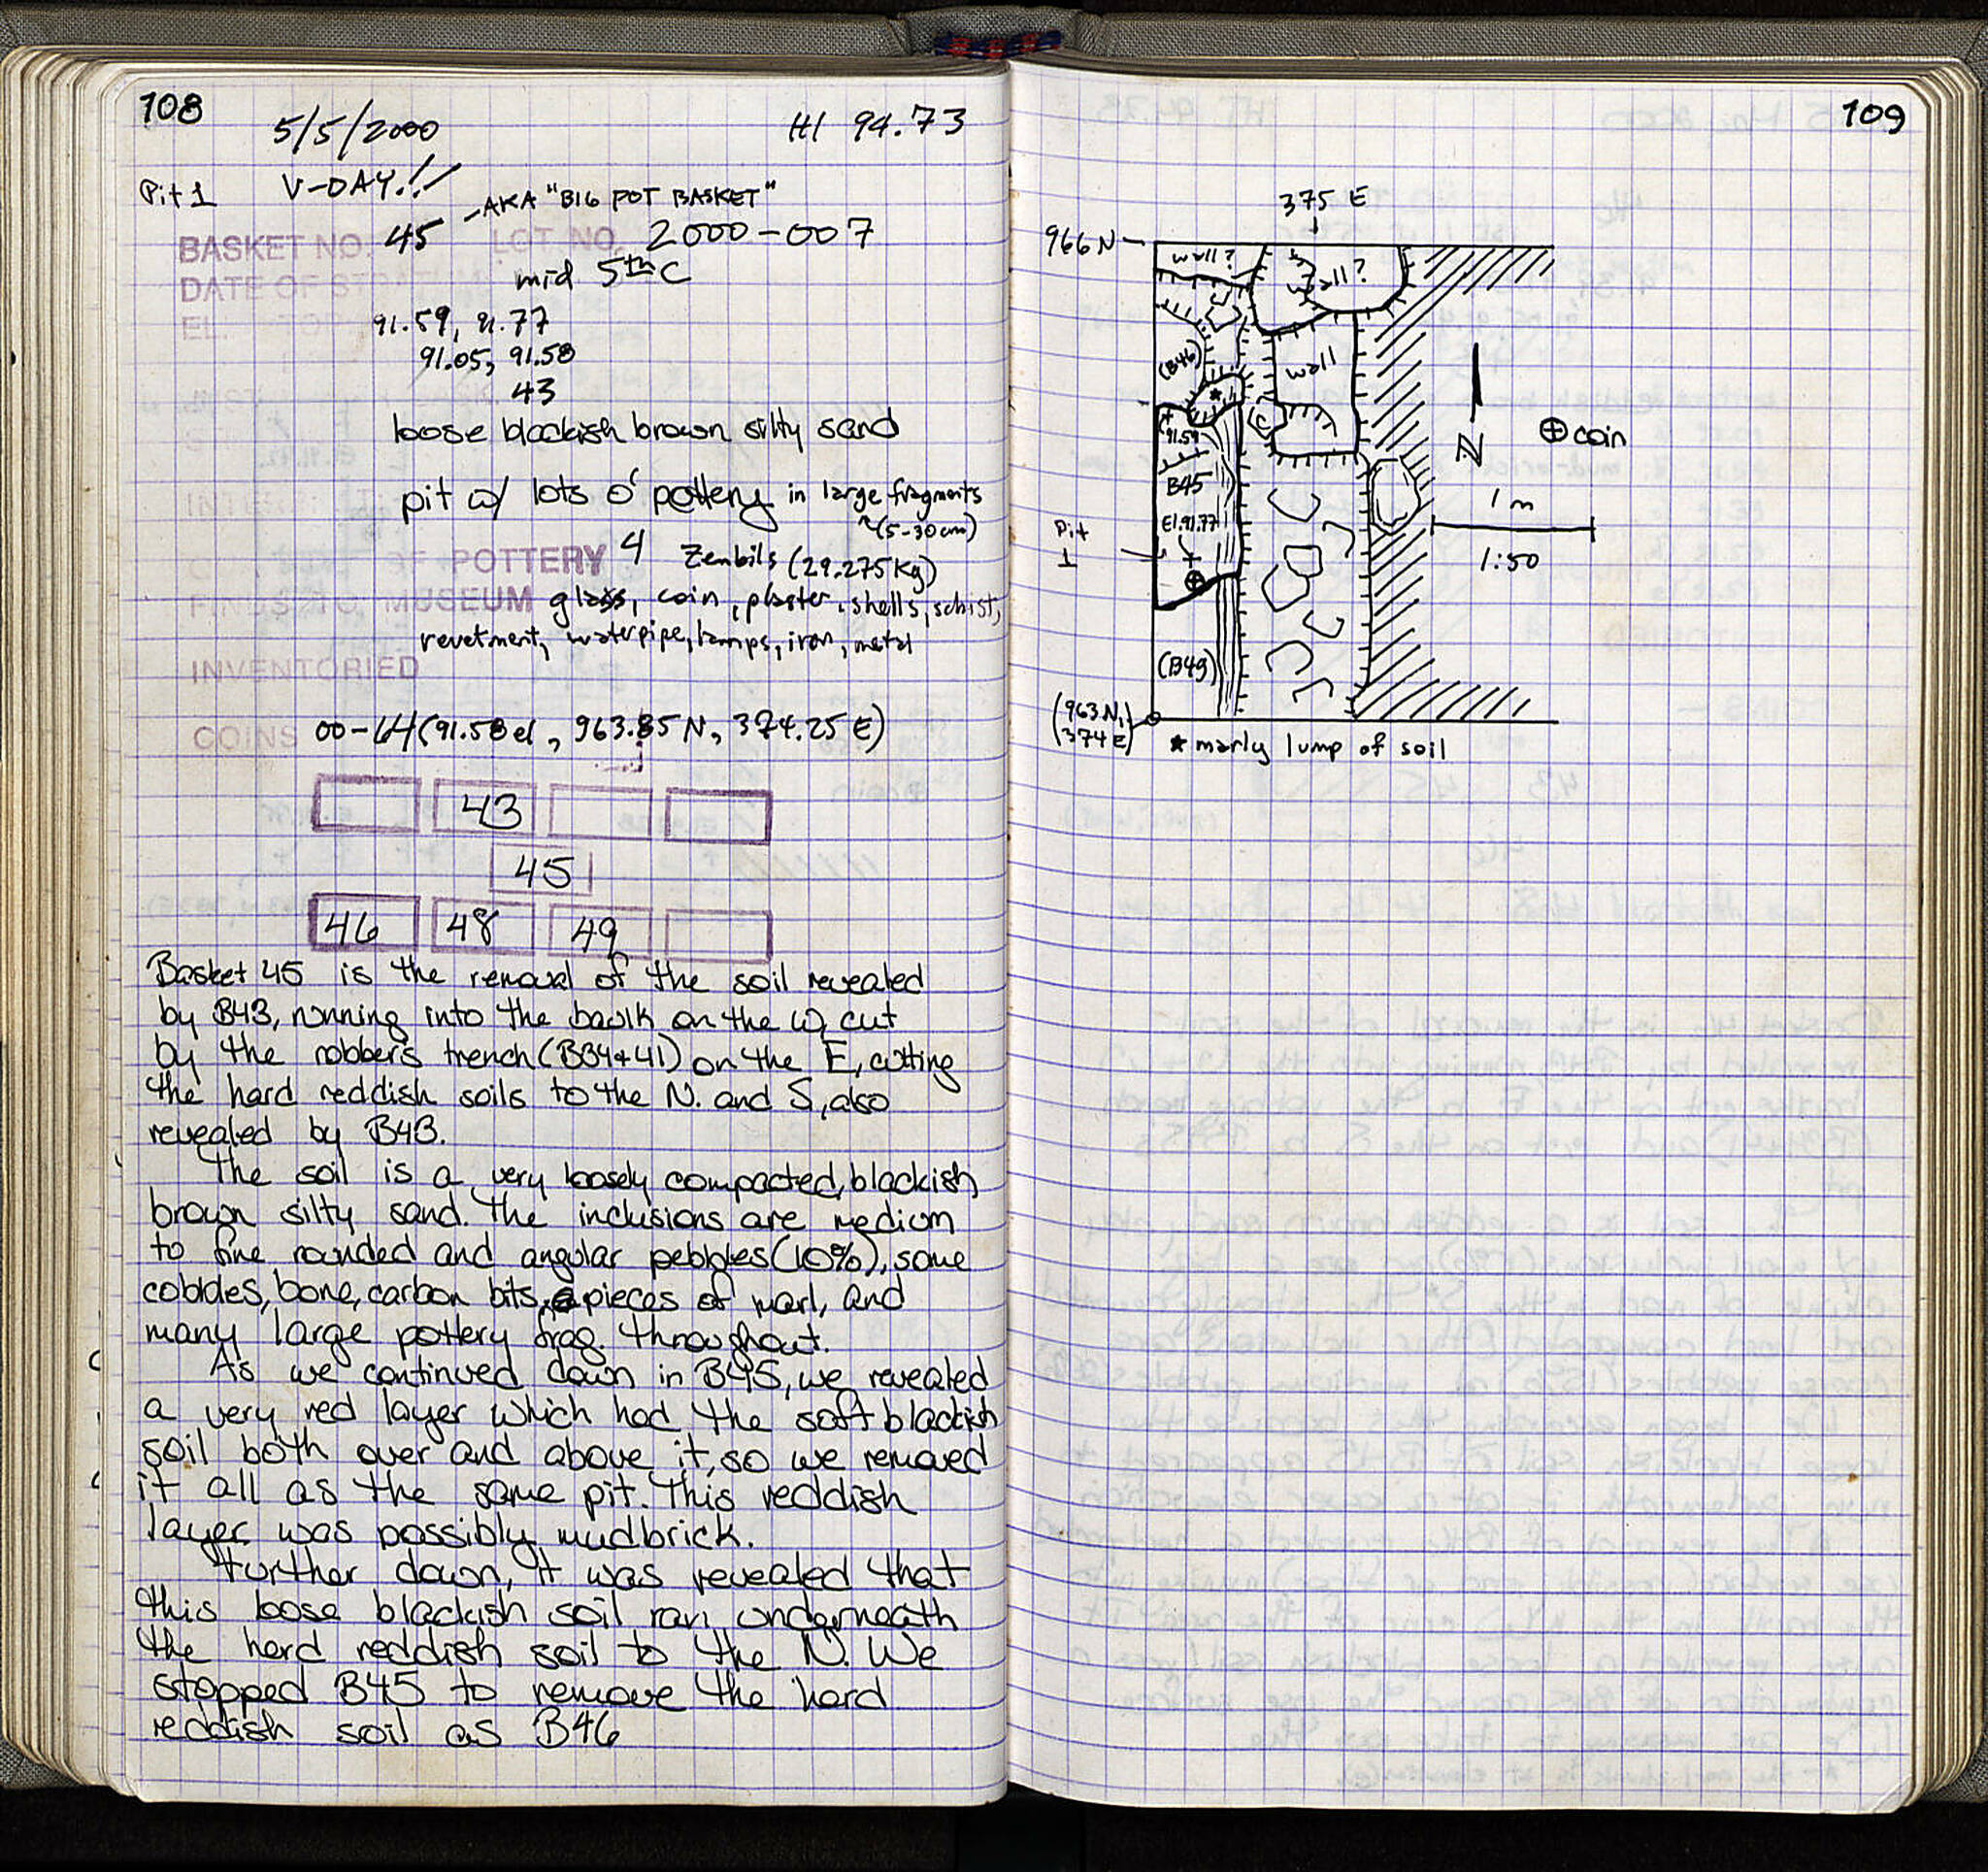 108
5/5/2000 HI 94.73
Pit 1 V-DAY!!
-AKA "BIG POT BASKET"
BASKET NO. 45 LOT NO. 2000-007
DATE OF STRATUM mid 5th C
EL. TOP 91.59, 91.77
91.05, 91.58
43
loose blackish brown silty sand
pit w/ lots o' pottery in large fragments
~(5-30cm)
OF POTTERY 4 Zembils (29.275Kg)
FINDS TO MUSEUM glass, coin, plaster, shells, schist,
revetment, waterpipe, lamps, iron, metal
INVENTORIED
COINS 00-64 (91.58 el, 963.85 N, 374.25 E)
43
45
46 48 49
Basket 45 is the removal of the soil revealed
by B43, running into the baulk on the W, cut
by the robber's trench (B34+41) on the E, cutting
the hard reddish soils to the N. and S, also
revealed by B43.
The soil is a very loosely compacted, blackish
brown silty sand. The inclusions are medium
to fine rounded and angular pebbles (10%), some
cobbles, bone, carbon bits, pieces of marl, and
many large pottery frag. throughout.
As we continued down in B45, we revealed
a very red layer which had the soft blackish
soil both over and above it, so we removed
it all as the same pit. This reddish
layer was possibly mudbrick.
Further down, it was revealed that
this loose blackish soil ran underneath
the hard reddish soil to the N. We
stopped B45 to remove the hard
reddish soil as B46
109
375 E
966 N
wall?
wall?
(B46)
wall
*
91.59
B45
El. 91.77
Pit
1
N
⊕ coin
1 m
1:50
(B49)
(963 N,
374 E)
* marly lump of soil